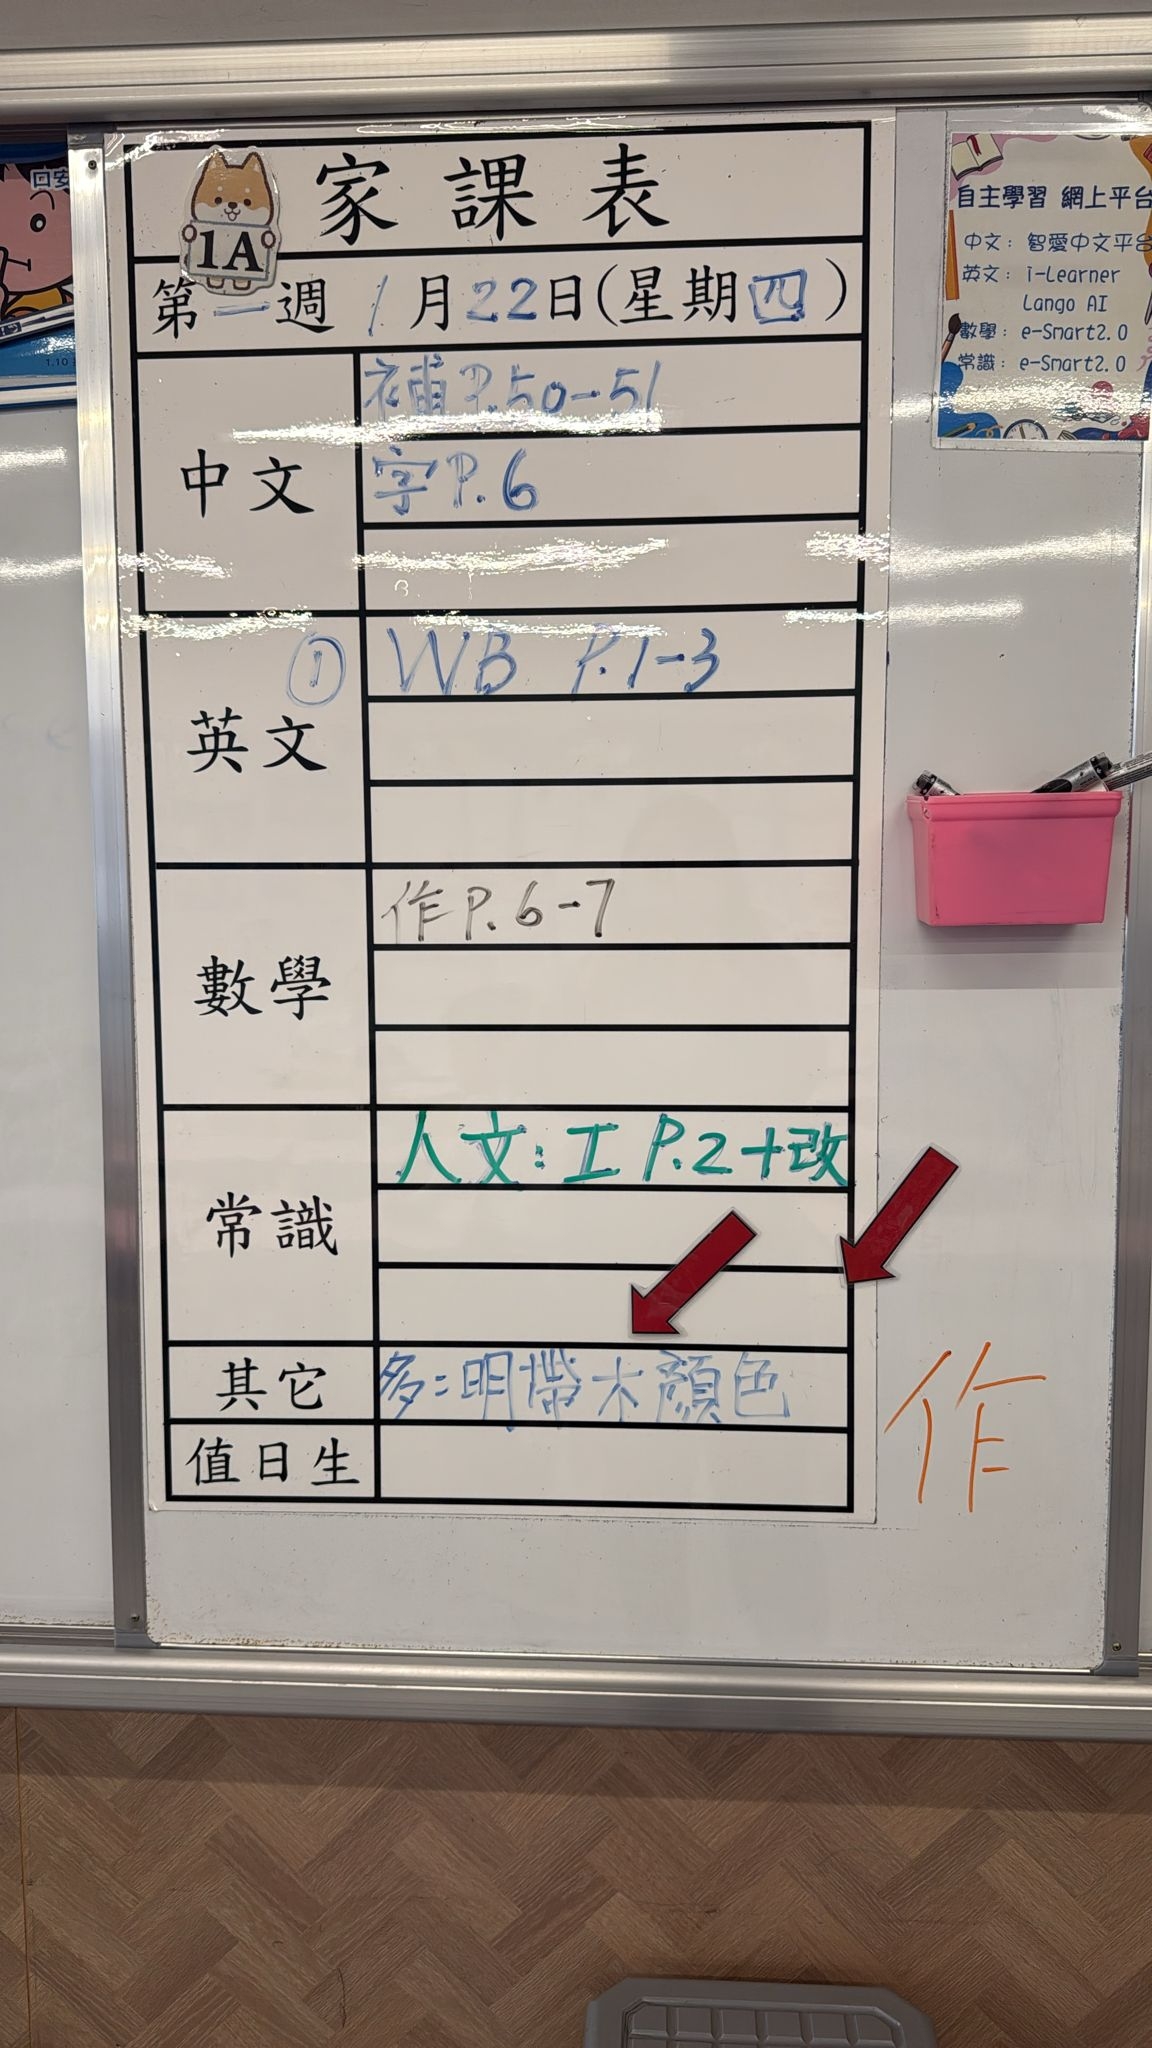 家課表
1A
第一週 1月22日(星期四)
中文
補P.50-51
字P.6
英文
① WB P.1-3
數學
作P.6-7
常識
人文:工 P.2+改
其它
多:明帶木顏色
值日生
作
自主學習 網上平台
中文: 智愛中文平台
英文: i-Learner
Lango AI
數學: e-Smart2.0
常識: e-Smart2.0